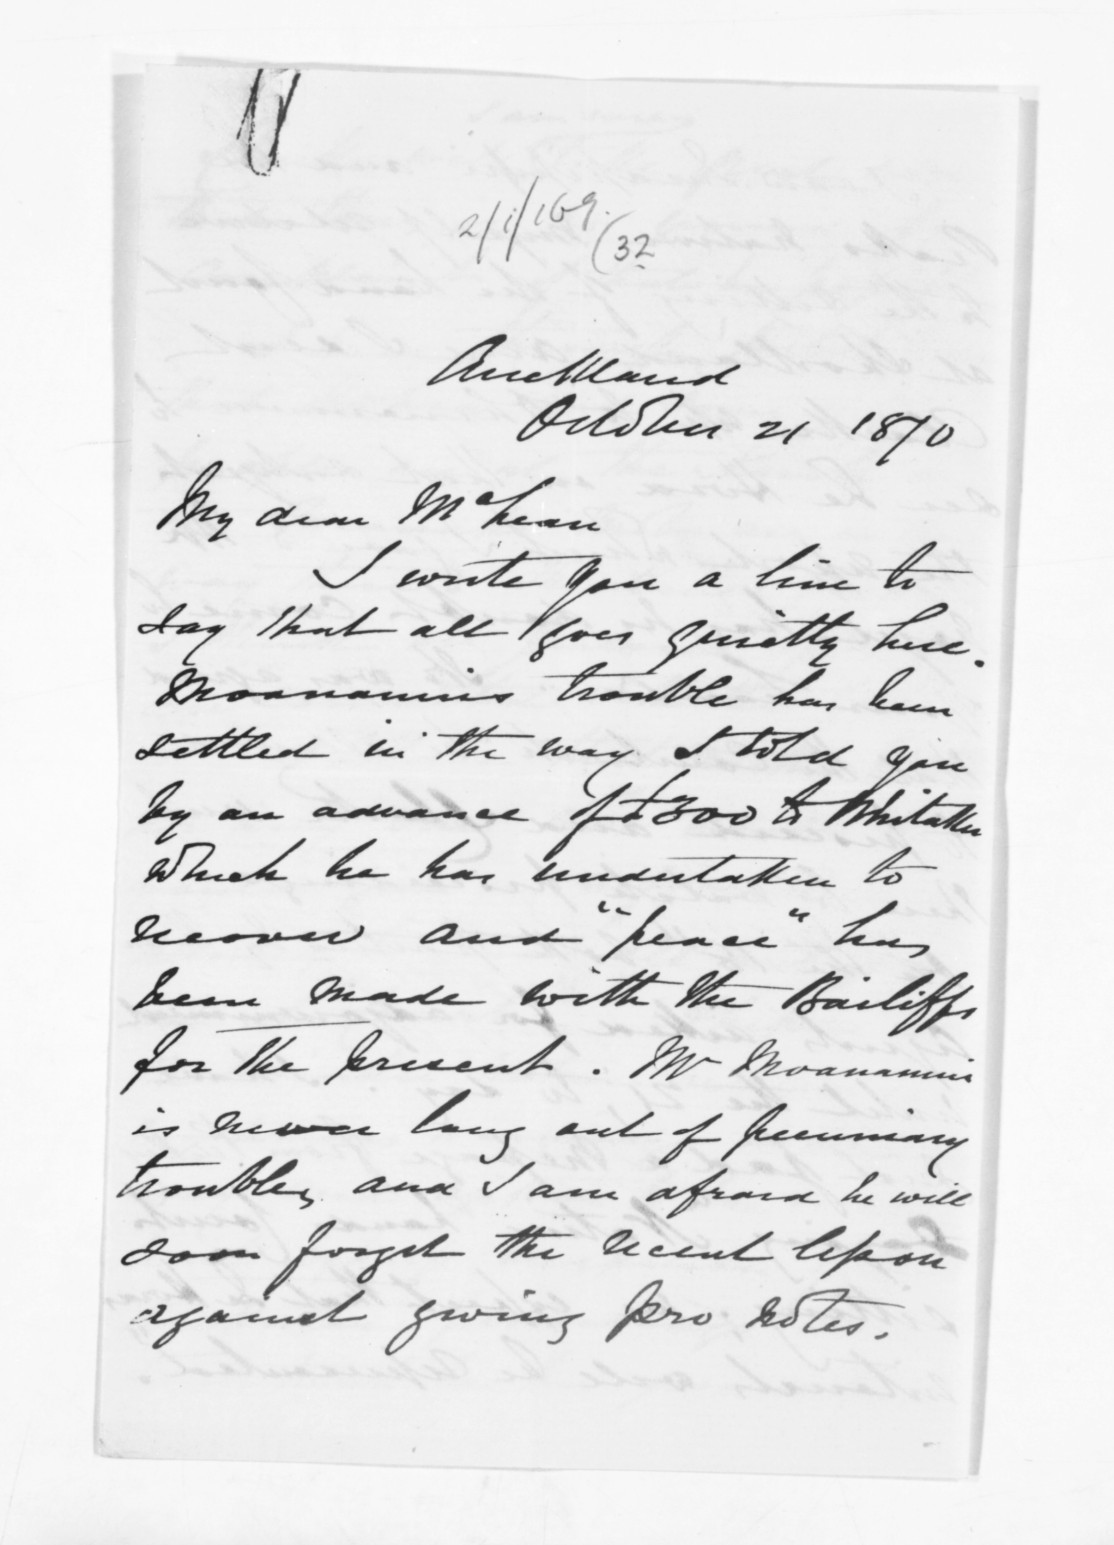 2/1/169.
(32
Auckland
October 21 1870
My dear McLean
I write you a line to
say that all goes quietly here.
Moananuis trouble has been
settled in the way I told you
by an advance of £300 to Whitaker
which he has undertaken to
recover and "peace" has
been made with the Bailiffs
for the present. Mr Moananui
is never long out of pecuniary
trouble, and I am afraid he will
soon forget the recent lesson
against giving pro notes.